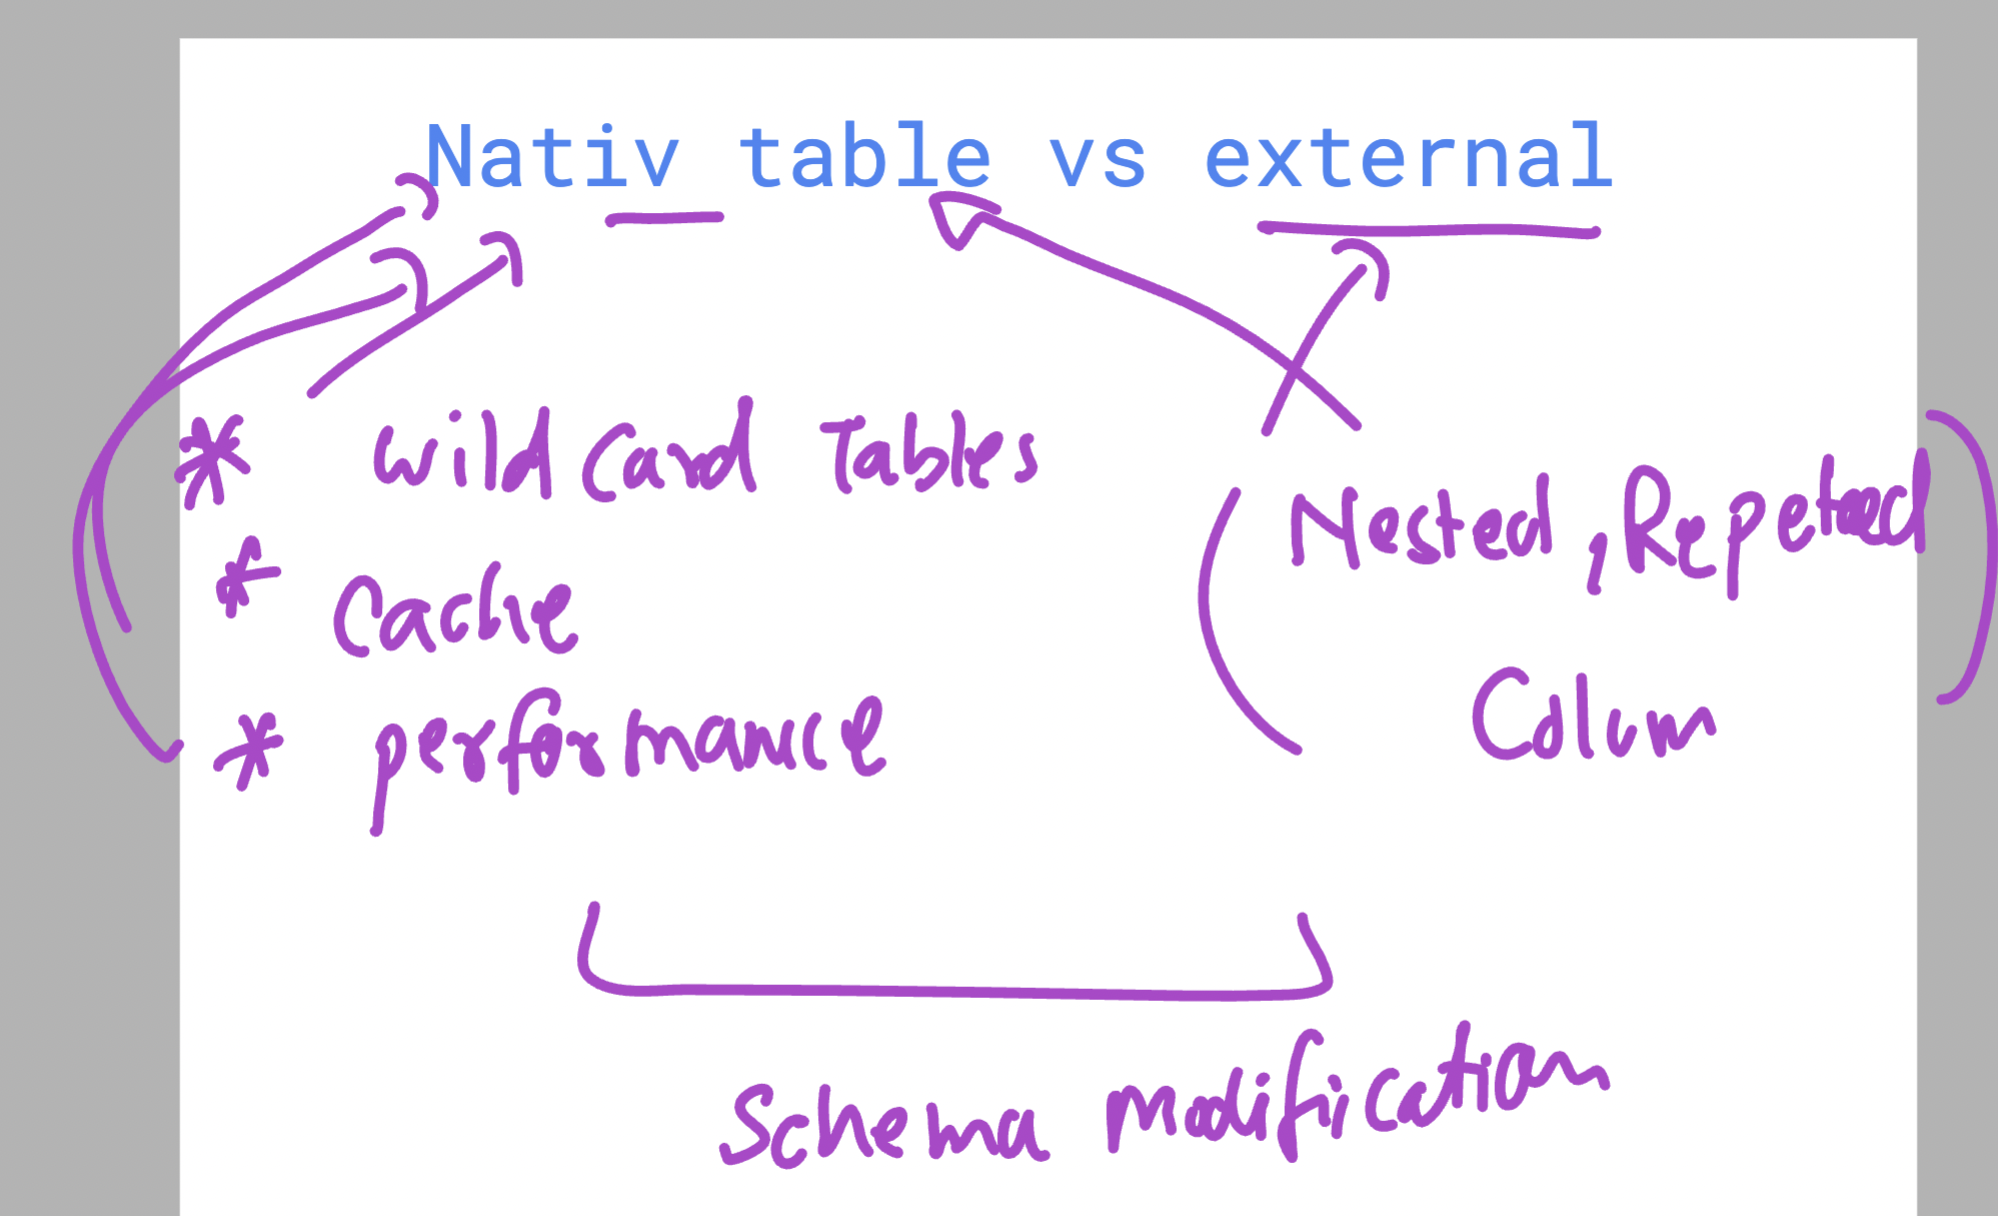 Nativ table vs external
* Wild Card Tables
* Cache
* performance
(Nested, Repeted
Colum)
Schema modification